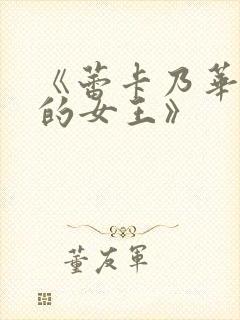 《蕾卡乃華
的女王》
董友軍